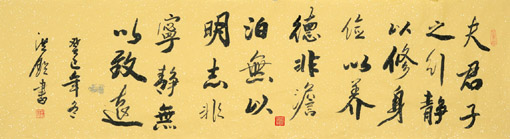 夫君子
之引静
以修身
俭以养
德非澹
泊無以
明志非
寧静無
以致遠
癸巳年冬